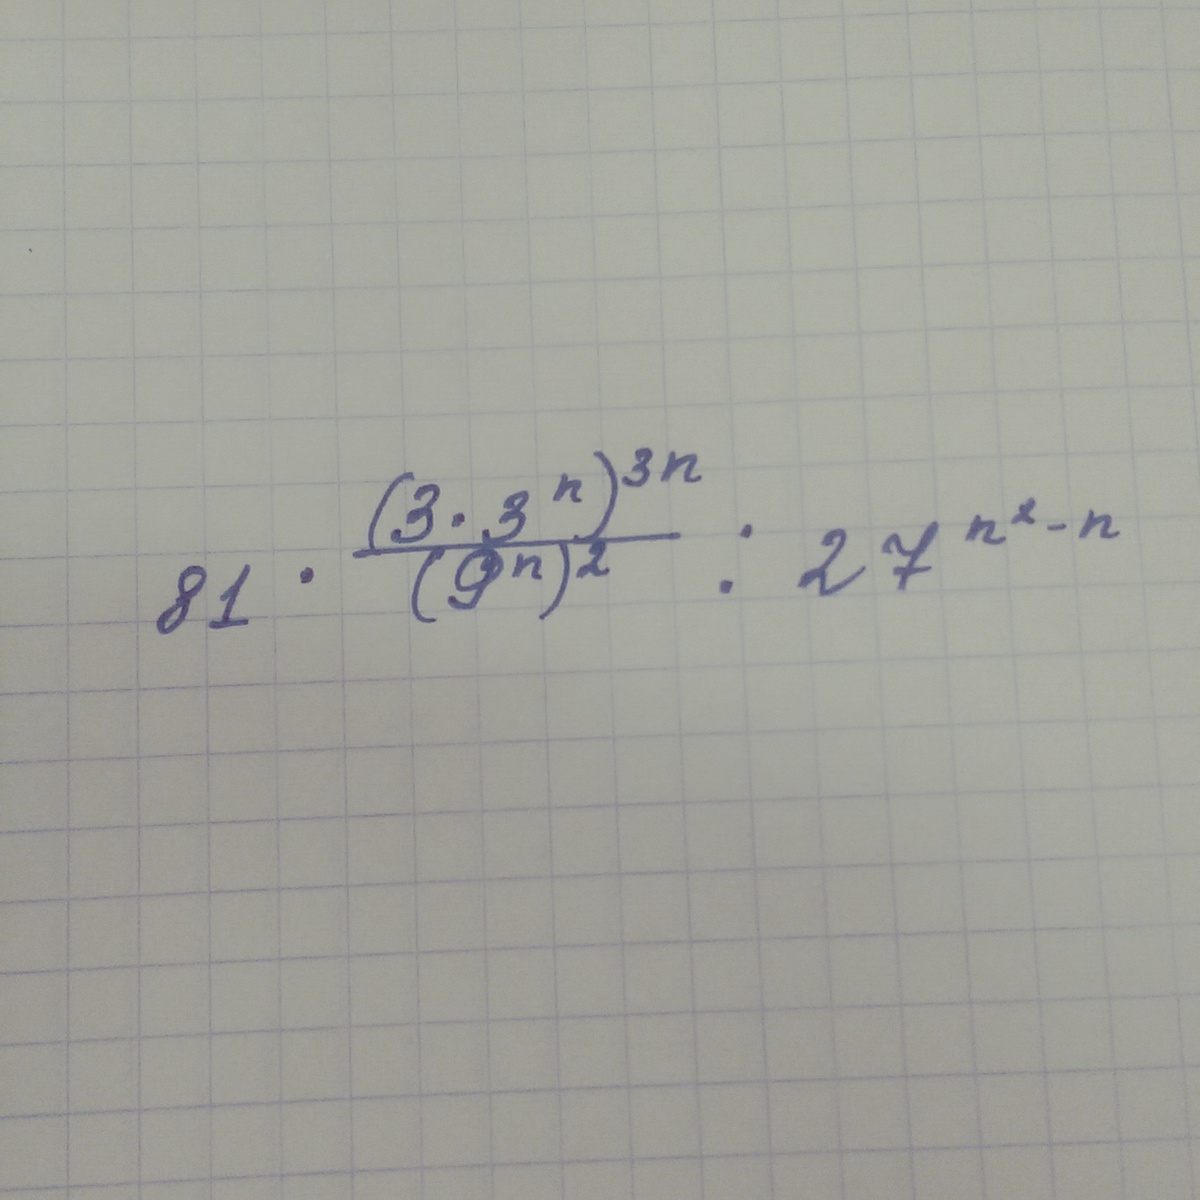 81 · (3 · 3^n)^3n / (9^n)^2 : 27^n^2 - n